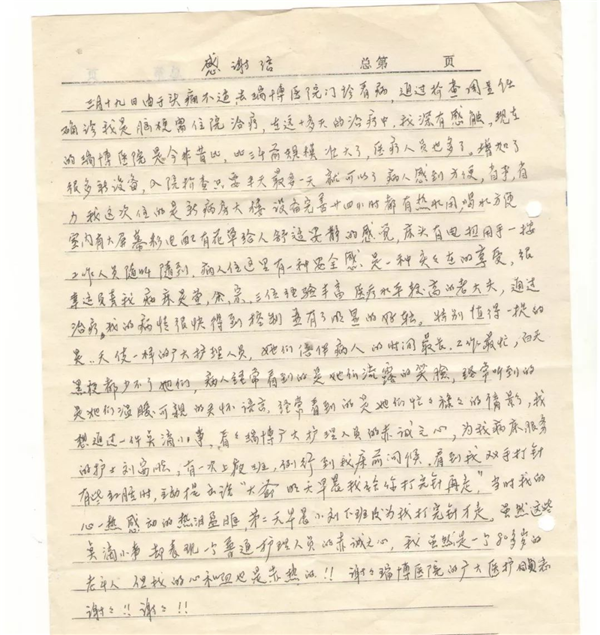 感谢信 总第 页
三月十九日由于头痛不适,去瑞博医院门诊看病,通过检查周主任
确诊我是脑梗留住院治疗,在这十多天的治疗中,我深有感触,现在
的瑞博医院是今非昔比,比三年前规模壮大了,医疗人员也多了。增加了
很多新设备,入院检查只要半天最多一天就可以了病人感到方便,省事,省
力 我这次住的是新病房大楼 设备完善 二十四小时都有热水用,喝水方便
室内有大屏幕彩电配有花草给人舒适安静的感觉,床头有电担用手一按
工作人员随叫随到,病人住这里有一种安全感 是一种实实在在的享受,很
负责我病床是 三位经验丰富 医疗水平较高的老大夫,通过
治疗,我的病情很快得到控制 并有了明显的好转。特别值得一提的
是,天使一样的广大护理人员,她们陪伴病人的时间最长,工作最忙,白天
黑夜都少不了她们,病人经常看到的是她们流露的笑脸,经常听到的
是她们温暖可亲的关怀语言,经常看到的是她们忙忙碌碌的情影,我
想通过一件点滴小事,看看瑞博广大护理人员的赤诚之心,为我病床服务
的护士刘 ,有一次上夜班,例行到我床前问候,看到我双手打针
有些红肿时,主动提示说“大爷 明天早晨我给你打完针再走”当时我的
心一热 感动的热泪盈眶 第二天早晨小刘下班后为我打完针才走。虽然这些
点滴小事 却表现一个普通护理人员的赤诚之心,我虽然是一个80多岁的
老年人 但我的心和血也是赤热的!! 谢谢瑞博医院的广大医护同志
谢谢!! 谢谢!!